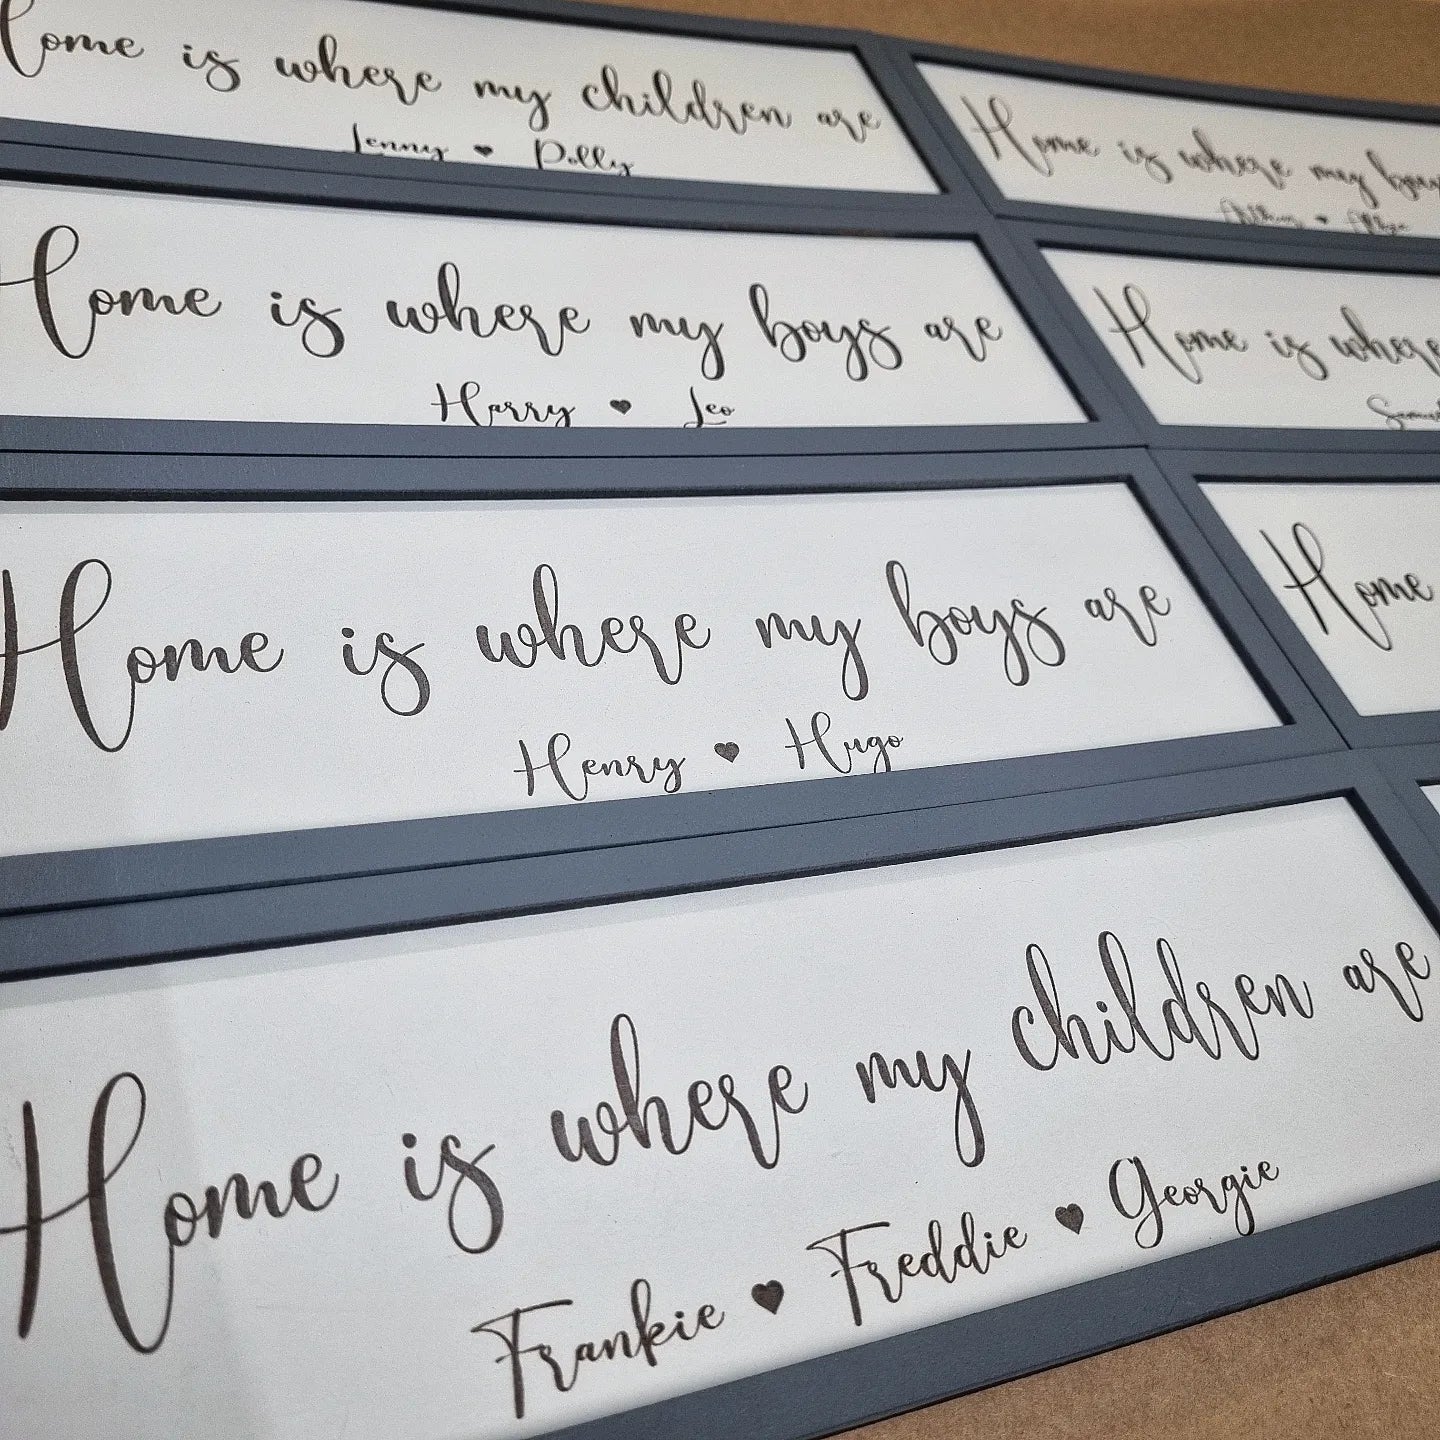 Home is where my children are
Jenny ♥ Polly
Home is where my boys are
Harry ♥ Leo
Home is where my boys are
Henry ♥ Hugo
Home is where my children are
Frankie ♥ Freddie ♥ Georgie
Home is where my boys
Home is where
Home